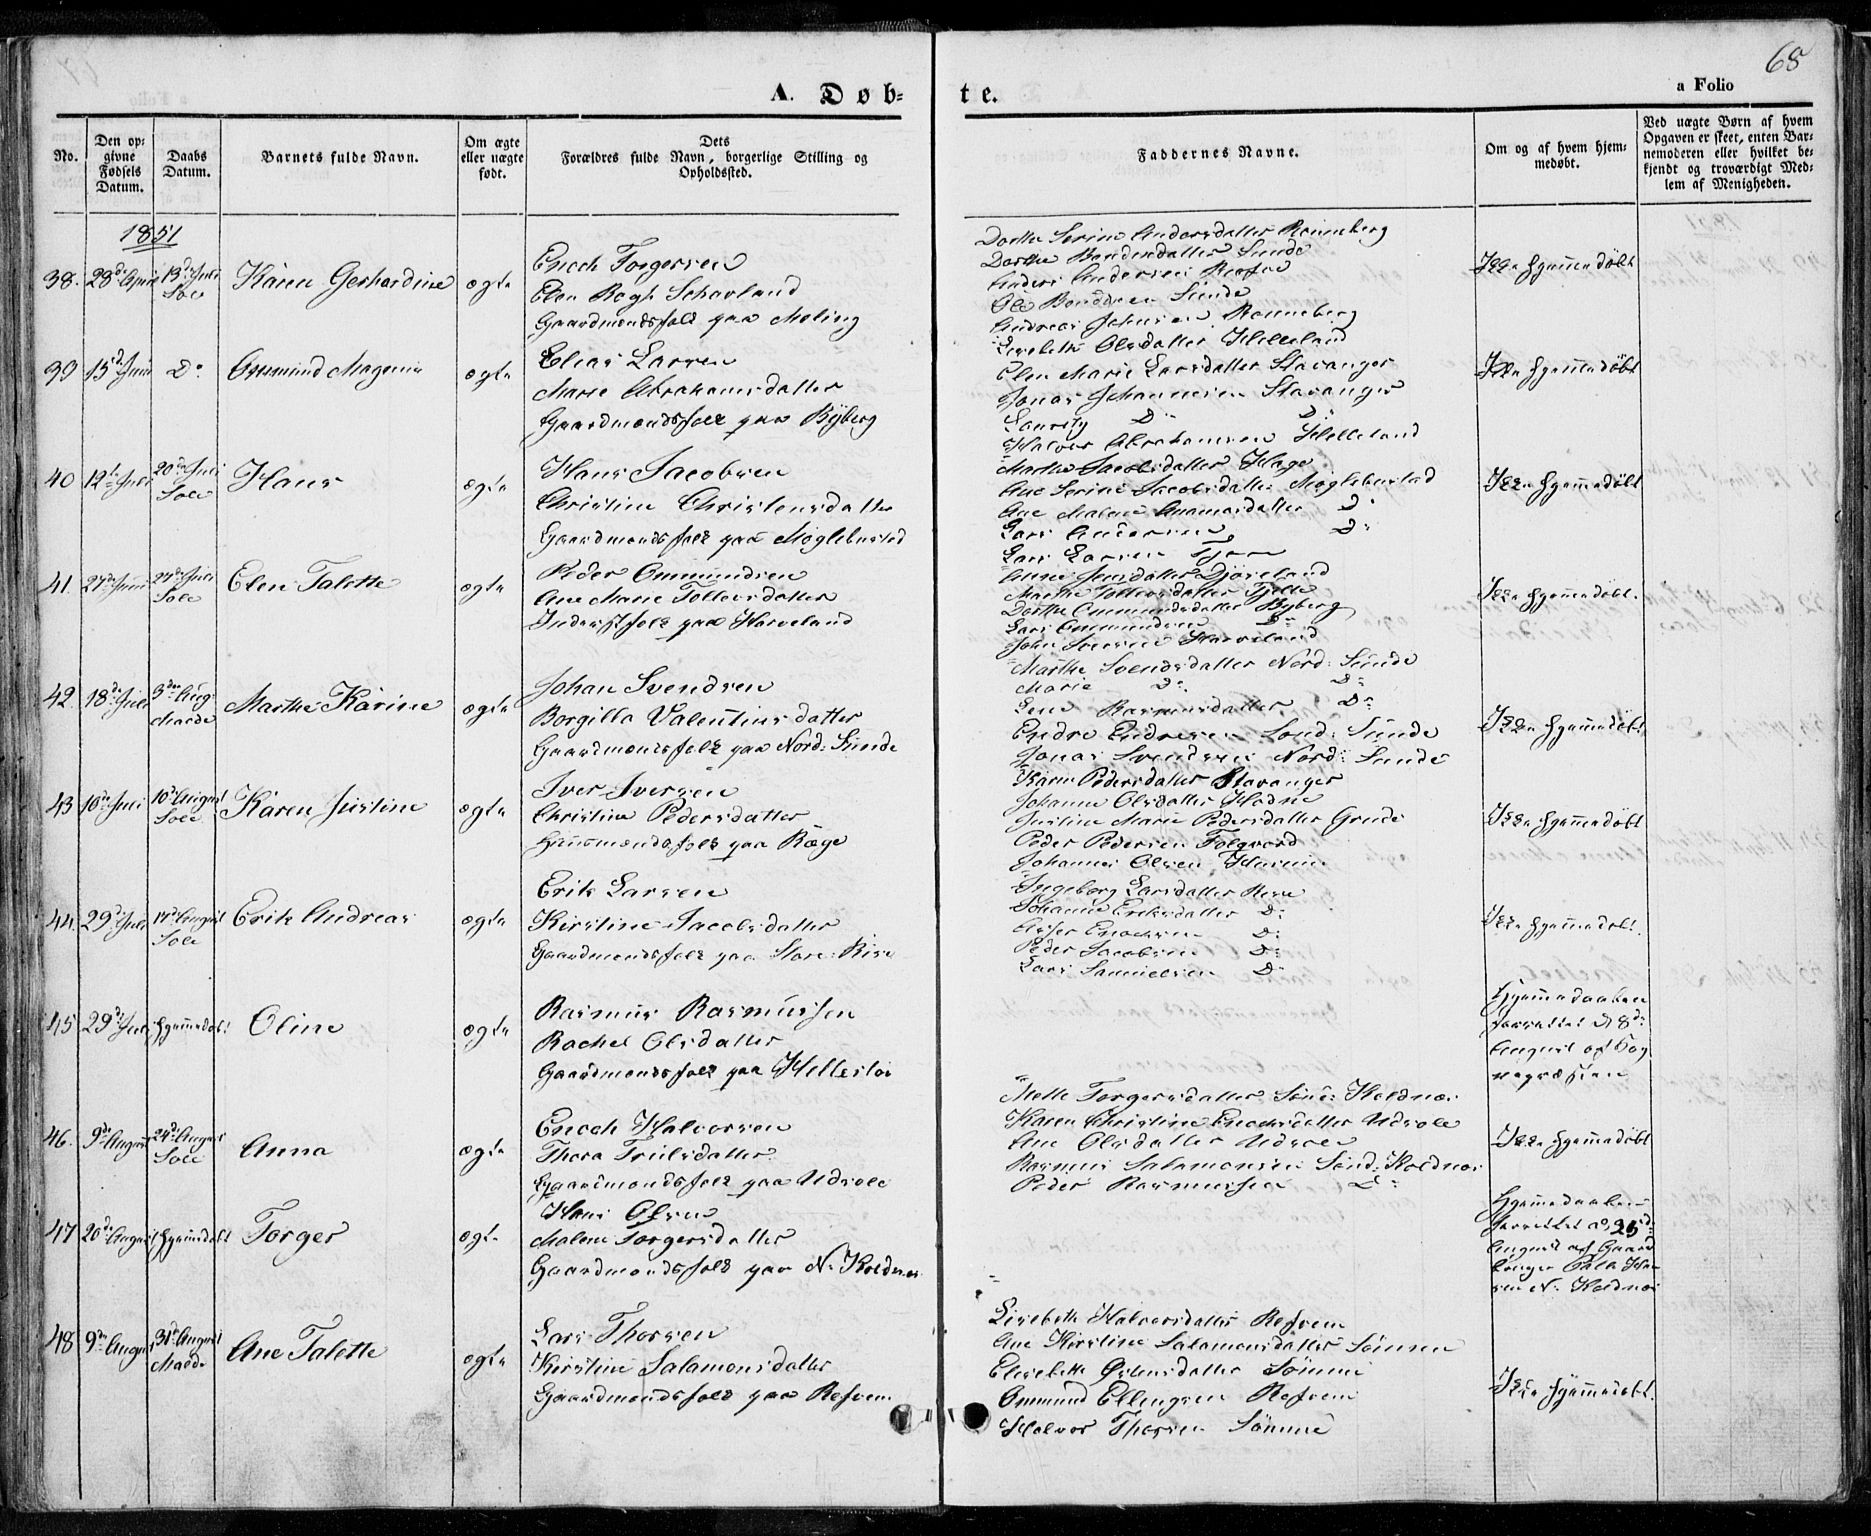 68
A. Døb-
te.
a Folio
No.
Den op-
givne
Fødsels
Datum.
Daabs
Datum.
Barnets fulde Navn.
Om ægte
eller uægte
født.
Dets
Forældres fulde Navn, borgerlige Stilling og
Opholdssted.
Faddernes Navne.
Om og af hvem hjem-
medøbt.
Ved uægte Børn af hvem
Opgaven er skeet, enten Bar-
nemoderen eller hvilket be-
kjendt og troværdigt Med-
lem af Menigheden.
1851
38.
28de April
13de Juli
Sole
Karen Gerhardine
ægte
Enoch Torgersen
Elen Regt. Schavland
Gaardmandsfolk paa Meling
Dorthe Serine Andersdatter Ronneberg
Dorthe Bendixdatter Sunde
Anders Andersen
Ole Sunde
Andreas Johnsen Ronneberg
Ikke hjemmedøbt
39
15de Juni
Do
Ommund Magnus
ægte
Elias Larsen
Marie Abrahamsdatter
Gaardmandsfolk paa Ryberg
Lisebeth Olsdatter Helleland
Elen Marie Larsdatter Stavanger
Jonas Johannesen Stavanger
Lauritz Do Do
Halvor Abrahamsen Helleland
Ikke hjemmedøbt
40
12te Juli
20de Juli
Sole
Hans
ægte
Hans Jacobsen
Christine Christensdatter
Gaardmandsfolk paa Møglebustad
Marthe Jacobsdatter Hage
Ane Serine Jacobsdatter Møglebustad
Ane Malene Gunnarsdatter Do
Lars Andersen Do
Lars Larsen Tjora
Ikke hjemmedøbt
41.
27de Juni
27de Juli
Sole
Elen Talette
ægte
Peder Ommundsen
Ane Marie Tollevsdatter
Inderstfolk paa Harveland
Anne Jensdatter
Marthe Tollevsdatter Tjelte
Dorthe Ommundsdatter Ryberg
Lars Ommundsen Do
John Iversen Harveland
Ikke hjemmedøbt.
42.
18de Juli
3die Aug:
Malde
Marthe Karine
ægte
Johan Svendsen
Borgilla Valentinsdatter
Gaardmandsfolk paa Nord: Sunde
Marthe Svendsdatter Nord: Sunde
Marie Do. Do
Lene Rasmusdatter Do
Endre Endresen Sond: Sunde
Jonas Svendsen Nord: Sunde
Ikke hjemmedøbt
43
10de Juli
10de August
Sole
Karen Justine
ægte
Iver Iversen
Christine Pedersdatter
Huusmandsfolk paa Ræge
Karen Pedersdatter Stavanger
Johanne Olsdatter Hodne
Justine Marie Pedersdatter Grude
Peder Pedersen
Johannes Olsen
Ikke hjemmedøbt
44.
29de Juli
17de August
Sole
Erik Andreas
ægte
Erik Larsen
Kirstine Jacobsdatter
Gaardmandsfolk paa Store: Risa
Ingeborg Larsdatter Resa
Johanne Eriksdatter Do
Asser Enochsen Do
Peder Jacobsen Do
Lars Samuelsen Do
Ikke hjemmedøbt.
45
29de Juli
hjemmedøbt
Oline
ægte
Rasmus Rasmussen
Rachel Olsdatter
Gaardmandsfolk paa Hellestø
Hjemmedaaben
forrettet d 8de
August af Sog-
nepræsten
46.
9de August
24de August
Sole
Anna
ægte
Enoch Halvorsen
Thora Trulsdatter
Gaardmandsfolk paa Udsole
Mette Torgersdatter Sønd: Koldnæs
Karen Christine Enochsdatter Udsole
Ane Olsdatter Udsole
Rasmus Salamonsen Sønd: Koldnæs
Peder Rasmussen Do
Ikke hjemmedøbt
47
20de August
hjemmedøbt
Torger
ægte
Hans Olsen
Malene Torgersdatter
Gaardmandsfolk paa N. Koldnæs
Hjemmedaaben
forrettet d. 25de
August af Gaard
N: Koldnæs
48
9de August
31de August
Malde
Ane Talette
ægte
Lars Thorsen
Kirstine Salamonsdatter
Gaardmandsfolk paa Refsem
Lisebeth Halvorsdatter Refsem
Ane Kirstine Salamonsdatter Sømme
Elisebeth Østensdatter Sømme
Ommund Ellingsen Refsem
Halvor Thorsen Sømme
Ikke hjemmedøbt.